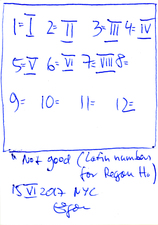 1=I 2=II 3=III 4=IV
5=V 6=VI 7=VIII 8=
9= 10= 11= 12=
Not good (Latin numbers
for Regan Ho)
15 VI 2017 NYC